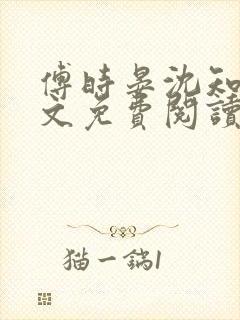 傅時晏沈知
文免費閱讀
猫一鍋1